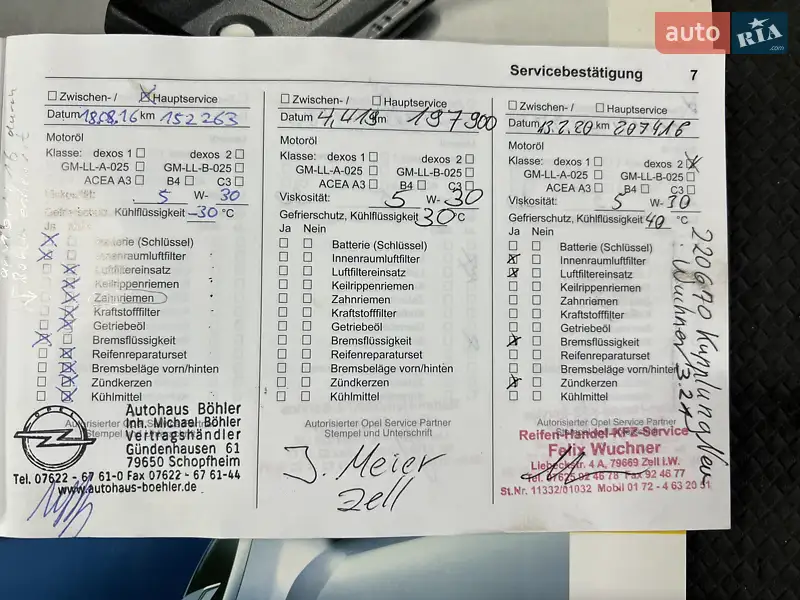 auto RIA.com
Servicebestätigung 7
Zwischen-/ Hauptservice
Datum 18.08.16 km 152 263
Motoröl
Klasse: dexos 1 dexos 2
GM-LL-A-025 GM-LL-B-025
ACEA A3 B4 C3
Viskosität: 5 W- 30
Gefrierschutz, Kühlflüssigkeit -30 °C
Ja
Batterie (Schlüssel)
Innenraumluftfilter
Luftfiltereinsatz
Keilrippenriemen
Zahnriemen
Kraftstofffilter
Getriebeöl
Bremsflüssigkeit
Reifenreparaturset
Bremsbeläge vorn/hinten
Zündkerzen
Kühlmittel
Autorisierter Opel Service Partner
Stempel und Unterschrift
OPEL
Autohaus Böhler
Inh. Michael Böhler
Vertragshändler
Gündenhausen 61
79650 Schopfheim
Tel. 07622 - 67 61-0 Fax 07622 - 67 61-44
www.autohaus-boehler.de
Zwischen-/ Hauptservice
Datum 4.4.19 km 197900
Motoröl
Klasse: dexos 1 dexos 2
GM-LL-A-025 GM-LL-B-025
ACEA A3 B4 C3
Viskosität: 5 W- 30
Gefrierschutz, Kühlflüssigkeit 30 °C
Ja Nein
Batterie (Schlüssel)
Innenraumluftfilter
Luftfiltereinsatz
Keilrippenriemen
Zahnriemen
Kraftstofffilter
Getriebeöl
Bremsflüssigkeit
Reifenreparaturset
Bremsbeläge vorn/hinten
Zündkerzen
Kühlmittel
Autorisierter Opel Service Partner
Stempel und Unterschrift
J. Meier
Zell
Zwischen-/ Hauptservice
Datum 13.2.20 km 207416
Motoröl
Klasse: dexos 1 dexos 2
GM-LL-A-025 GM-LL-B-025
ACEA A3 B4 C3
Viskosität: 5 W- 30
Gefrierschutz, Kühlflüssigkeit 40 °C
Ja Nein
Batterie (Schlüssel)
Innenraumluftfilter
Luftfiltereinsatz
Keilrippenriemen
Zahnriemen
Kraftstofffilter
Getriebeöl
Bremsflüssigkeit
Reifenreparaturset
Bremsbeläge vorn/hinten
Zündkerzen
Kühlmittel
Autorisierter Opel Service Partner
Reifen-Handel-KFZ-Service
Felix Wuchner
Liebeckstr. 4 A, 79669 Zell i.W.
Tel. 07625 92 46 78 Fax 92 46 77
St.Nr. 11332/01032 Mobil 01 72 - 4 63 20 51
220670 Kupplung Neu
Wuchner 3.21